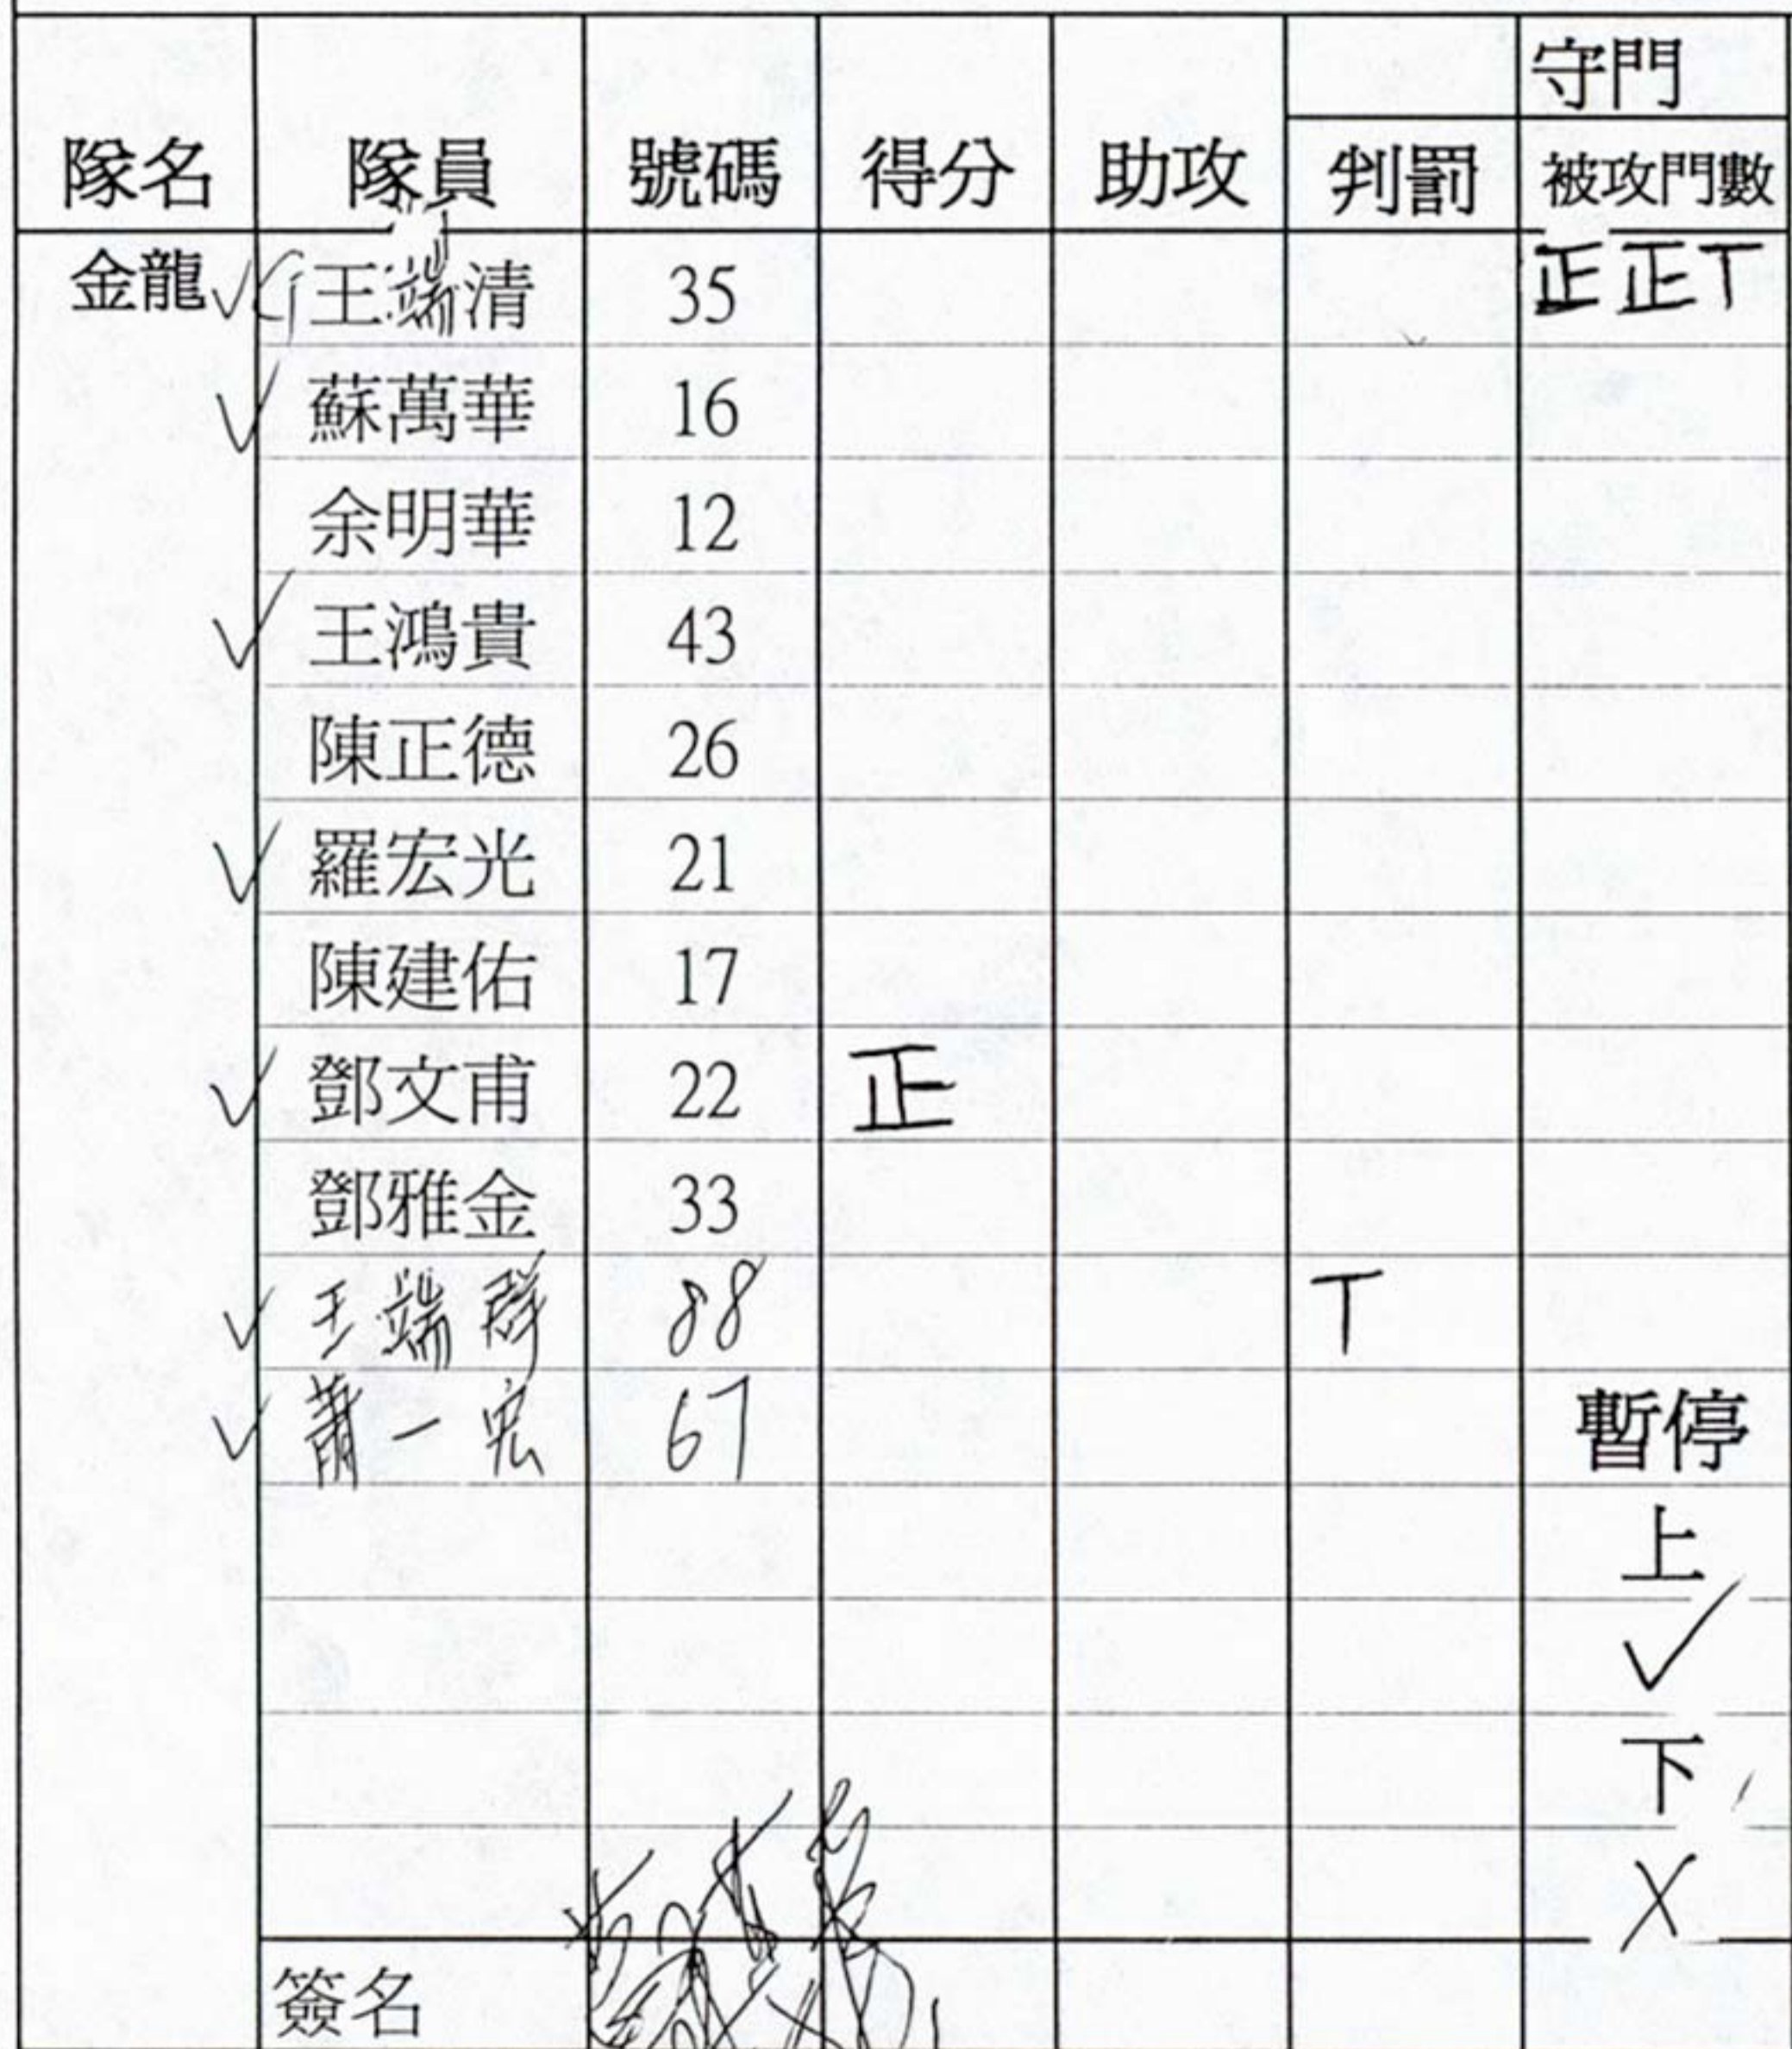 守門
隊名 隊員 號碼 得分 助攻 判罰 被攻門數
金龍 ✓ G 王端清 35 正正T
✓ 蘇萬華 16
余明華 12
✓ 王鴻貴 43
陳正德 26
✓ 羅宏光 21
陳建佑 17
✓ 鄧文甫 22 正
鄧雅金 33
✓ 王端群 88 T
✓ 蕭一宏 67
暫停
上
✓
下
X
簽名